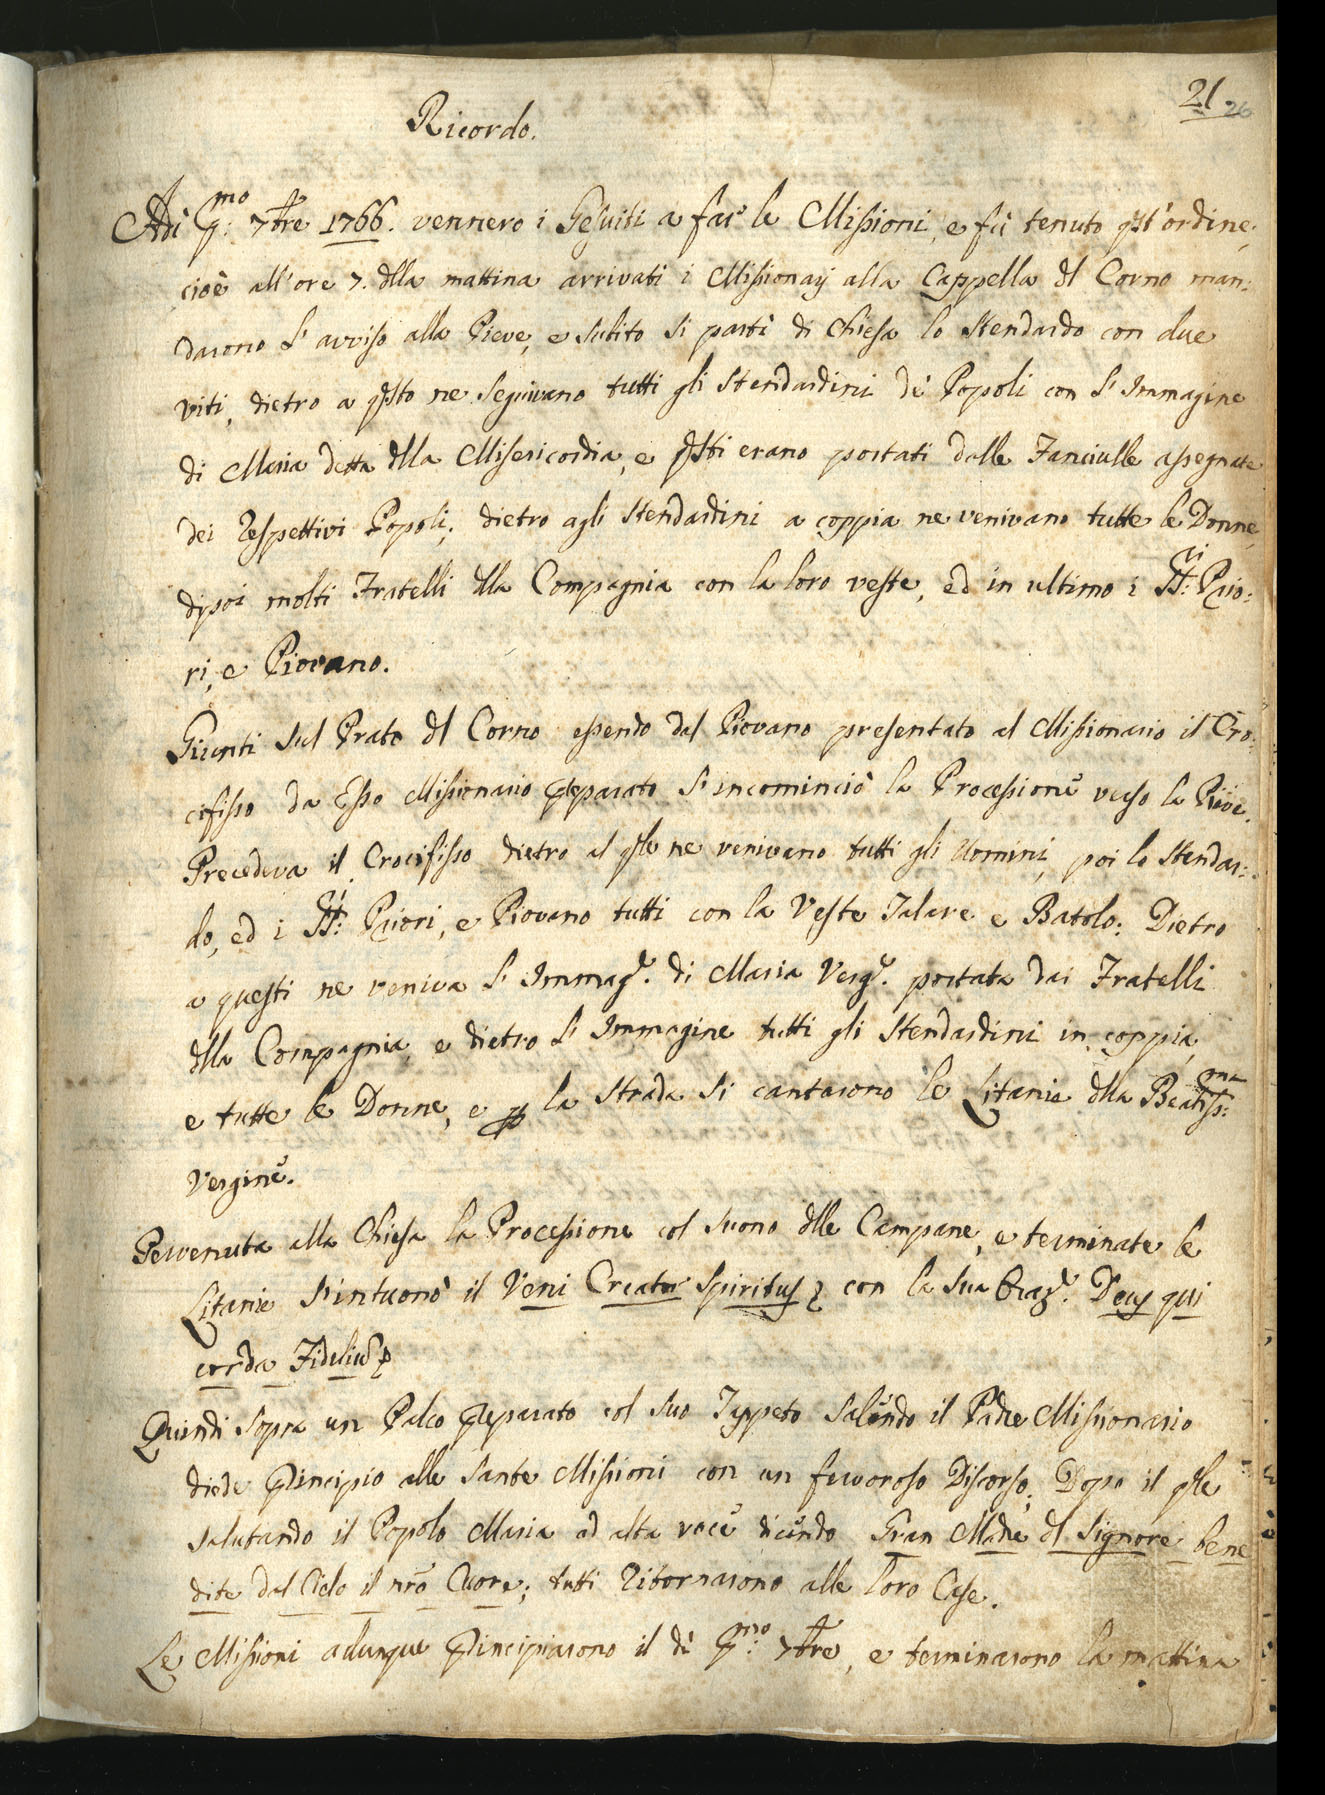 21 26
Ricordo.
Adì P:mo 7bre 1766. vennero i Gesuiti a far le Missioni, e fù tenuto qst'ordine,
cioè all'ore 7. dlla mattina arrivati i Missionarj alla Cappella dl Corno man:
darono l'avviso alla Pieve, e subito si partì di Chiesa lo Stendardo con due
viti, dietro a qsto ne seguivano tutti gli Stendardini de Popoli con l'Immagine
di Maria detta dlla Misericordia, e qsti erano portati dalle Fanciulle assegnate
dei respettivi Popoli; dietro agli Stendardini a coppia ne venivano tutte le Donne,
dipoi molti Fratelli dlla Compagnia con la loro veste, ed in ultimo i SS:ri Prio:
ri, e Piovano.
Giunti sul Prato dl Corno essendo dal Piovano presentato al Missionario il Cro:
cifisso da Esso Missionario preparato s'incominciò la Processione verso la Pieve.
Precedeva il Crocifisso dietro al qle ne venivano tutti gli Uomini, poi lo Stendar:
do, ed i SS:ri Priori, e Piovano tutti con la Veste Talare e Batolo: Dietro
a questi ne veniva l'Immag.e di Maria Verg.e portata dai Fratelli
dlla Compagnia, e dietro l'Immagine tutti gli Stendardini in coppia,
e tutte le Donne, e p la strada si cantarono le Litanie dlla Beatiss:ma
Vergine.
Pervenuta alla Chiesa la Processione col suono dlle Campane, e terminate le
Litanie s'intuonò il Veni Creator Spiritus con la sua Oraz.e Deus qui
corda Fidelium
Quindi sopra un Palco preparato col suo Tappeto salendo il Padre Missionario
diede principio alle Sante Missioni con un fervoroso Discorso; Dopo il qle
salutando il Popolo Maria ad alta voce dicendo Gran Madre dl Signore bene
dite dal Cielo il nro Cuore; tutti ritornarono alle loro Case.
Le Missioni adunque principiarono il dì P:mo 7bre, e terminarono la mattina